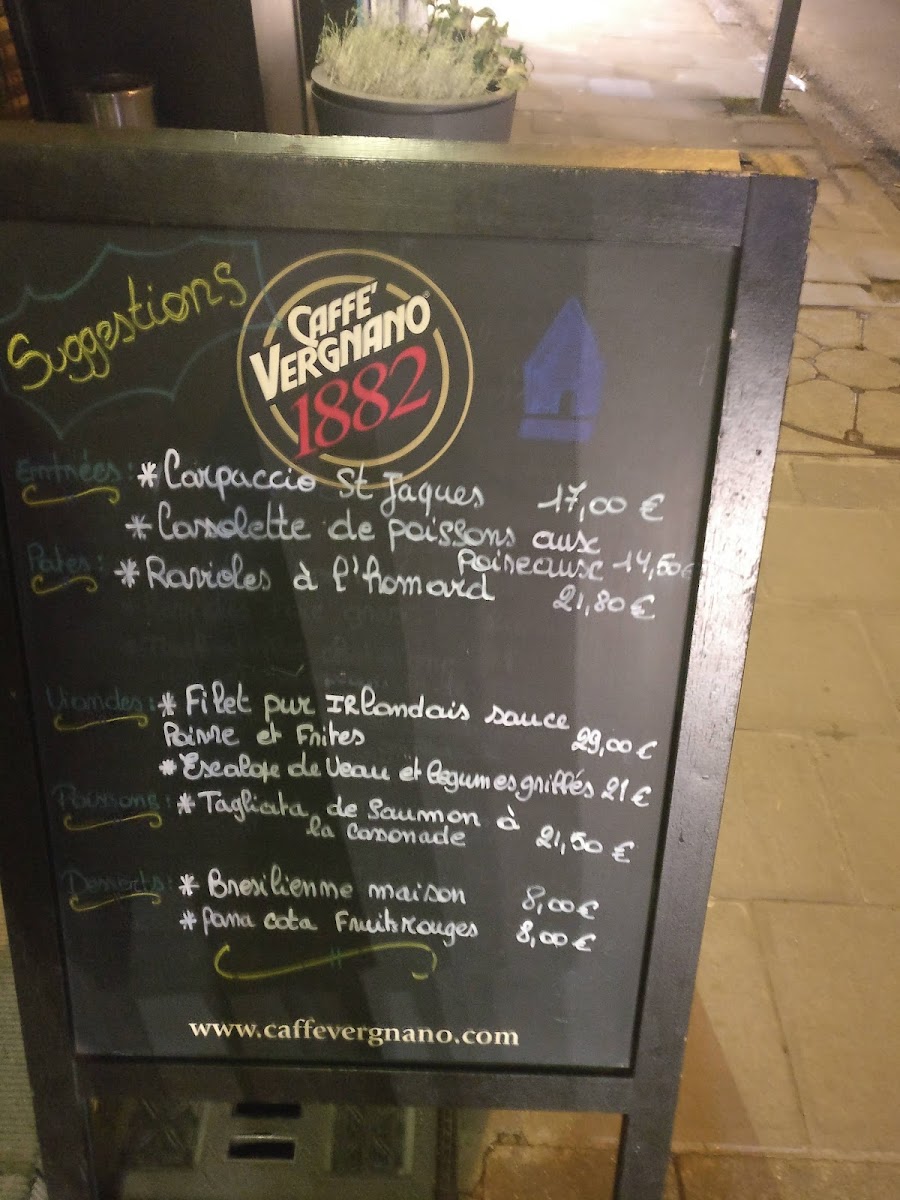 Suggestions
CAFFE'
VERGNANO®
1882
Entrées: * Carpaccio St Jaques 17,00 €
* Cassolette de poissons aux
Poireaux 14,50€
Pates: * Ravioles à l'homard
21,80 €
Viandes: * Filet pur IRlandais sauce
Poivre et Frites 29,00 €
* Escalope de Veau et legumes griffés 21 €
Poissons: * Tagliata de Saumon à
la Cassonade 21,50 €
Desserts: * Bresilienne maison 8,00 €
* pana cota Fruits rouges 8,00 €
www.caffevergnano.com